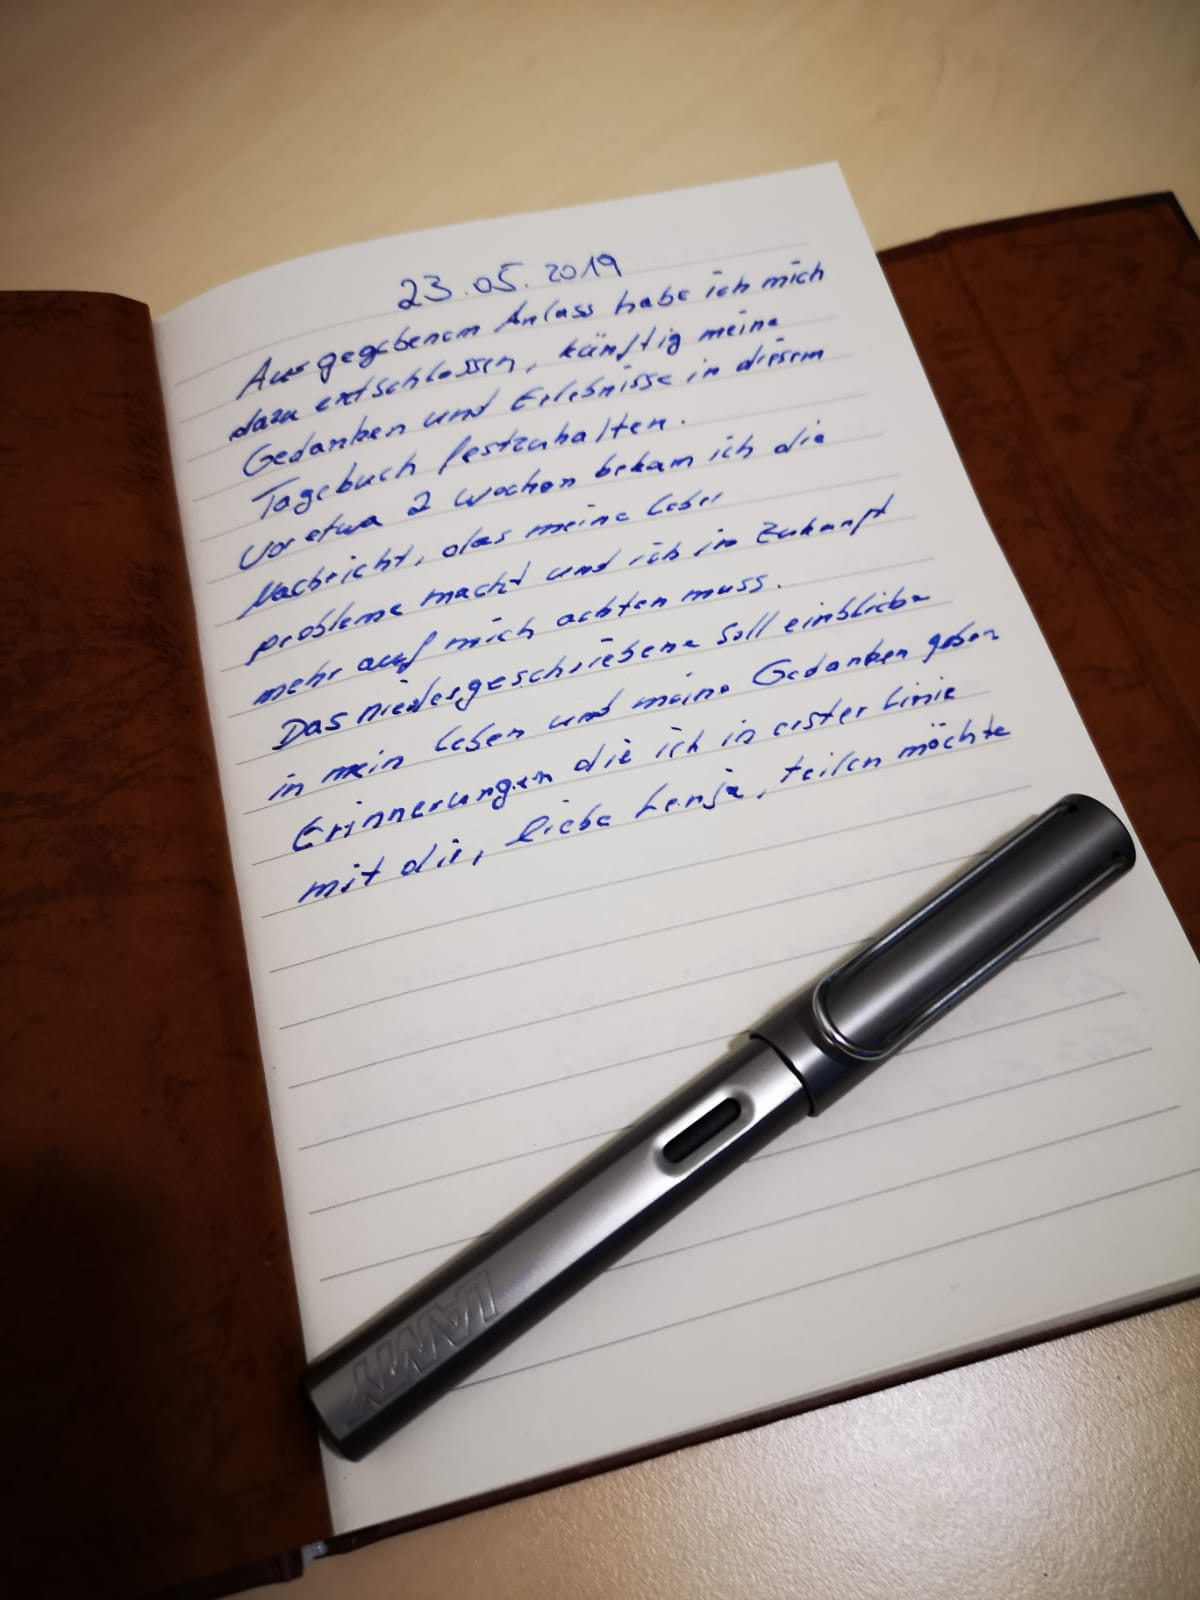 23.05.2019
Aus gegebenem Anlass habe ich mich
dazu entschlossen, künftig meine
Gedanken und Erlebnisse in diesem
Tagebuch festzuhalten.
Vor etwa 2 Wochen bekam ich die
Nachricht, das meine Leber
probleme macht und ich in Zukunft
mehr auf mich achten muss.
Das niedergeschriebene soll einblicke
in mein Leben und meine Gedanken geben
Erinnerungen die ich in erster Linie
mit dir, liebe Lenja, teilen möchte
LAMY